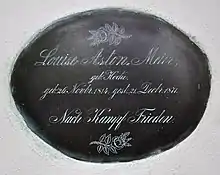 Louise Aston, Meier,
geb. Hoche,
geb. 26. Novbr. 1814, gest. 21. Decbr. 1871.
Nach Kampf Frieden.